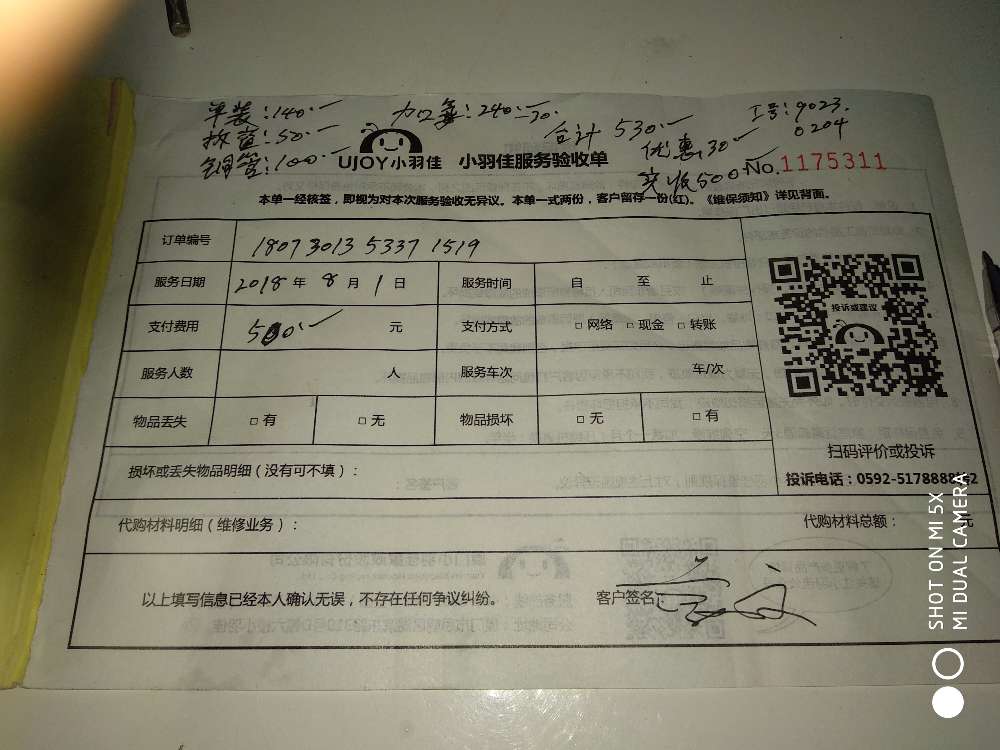 单装:140.-
加口氟:240.-
工号:9023.
0204
拆室:50.-
30.-
合计 530.-
铜管:100.-
优惠30-
实收500-
UJOY小羽佳 小羽佳服务验收单
No.1175311
本单一经核签，即视为对本次服务验收无异议。本单一式两份，客户留存一份(红)。《维保须知》详见背面。
订单编号 1807 3013 5337 1519
服务日期 2018 年 8 月 1 日 服务时间 自 至 止
支付费用 500.- 元 支付方式 □ 网络 □ 现金 □ 转账
服务人数 人 服务车次 车/次
物品丢失 □ 有 □ 无 物品损坏 □ 无 □ 有
投诉或建议
扫码评价或投诉
投诉电话：0592-5178888
损坏或丢失物品明细（没有可不填）：
代购材料明细（维修业务）：
代购材料总额： 元
以上填写信息已经本人确认无误，不存在任何争议纠纷。 客户签名：
SHOT ON MI 5X
MI DUAL CAMERA